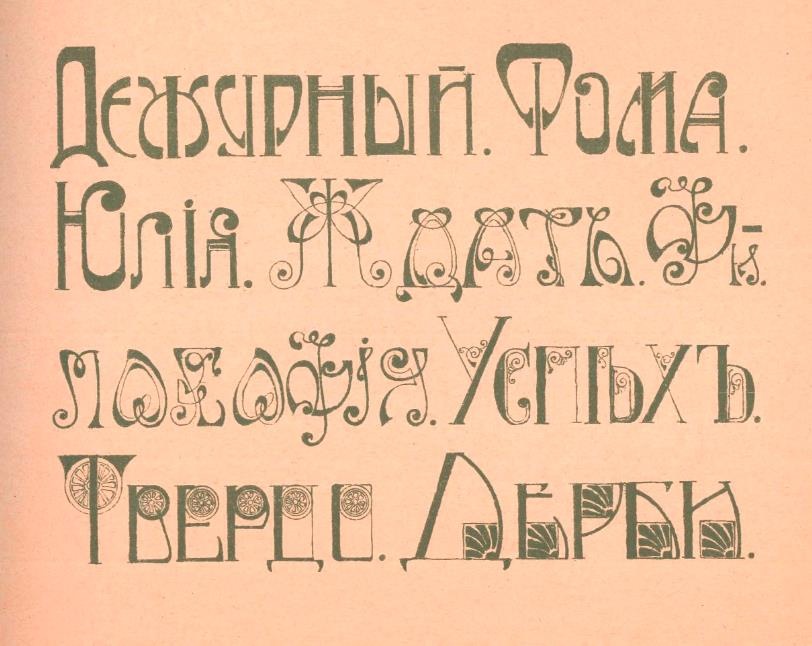 Дежурный. Фома.
Юлія. Ждать. Фи-
лософія. Успѣхъ.
Твердо. Дерби.